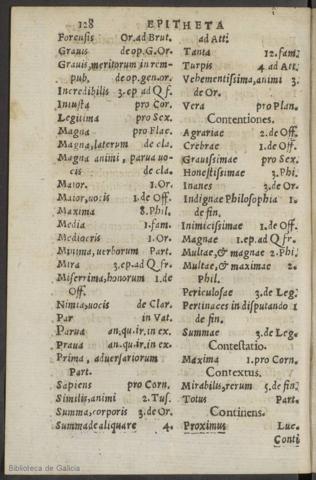 128 EPITHETA
Forensis Or.ad Brut.
Grauis de op.G.Or.
Grauis,meritorum in rem-
pub. de op.gen.or.
Incredibilis 3.ep ad Q f.
Iniusta pro Cor.
Legitima pro Sex.
Magna pro Flac.
Magna,laterum de cla.
Magna animi, parua uo-
cis de cla.
Maior. 1.Or.
Maior,uocis 1.de Off.
Maxima 8.Phil.
Media 1.fam.
Mediocris 1.Or.
Minima,uerborum Part.
Mira 3.ep.ad Q fr.
Miserrima,honorum 1.de
Off.
Nimia,uocis de Clar.
Par in Vat.
Parua an,qu.ir.in ex.
Praua an.qu.ir.in ex.
Prima, aduersariorum
Part.
Sapiens pro Corn.
Similis,animi 2.Tus.
Summa,corporis 3.de Or.
Summa de aliquare 4.
ad Att.
Tanta 12.fam.
Turpis 4.ad Att.
Vehementissima,animi 3.
de Or.
Vera pro Plan.
Contentiones.
Agrariae 2.de Off.
Crebrae 1.de Off.
Grauissimae pro Sex.
Honestissimae 3.Phi.
Inanes 3.de Or.
Indignae Philosophia 1.
de fin.
Inimicissimae 1.de Off.
Magnae 1.ep.ad Q fr.
Multae,& magnae 2.Phi.
Multae,& maximae 2.
Phil.
Periculosae 3.de Leg.
Pertinaces in disputando 1
de fin.
Summae 3.de Leg.
Contestatio.
Maxima 1.pro Corn.
Contextus.
Mirabilis,rerum 5.de fin.
Totus Part.
Continens.
Proximus Luc.
Conti
Biblioteca de Galicia